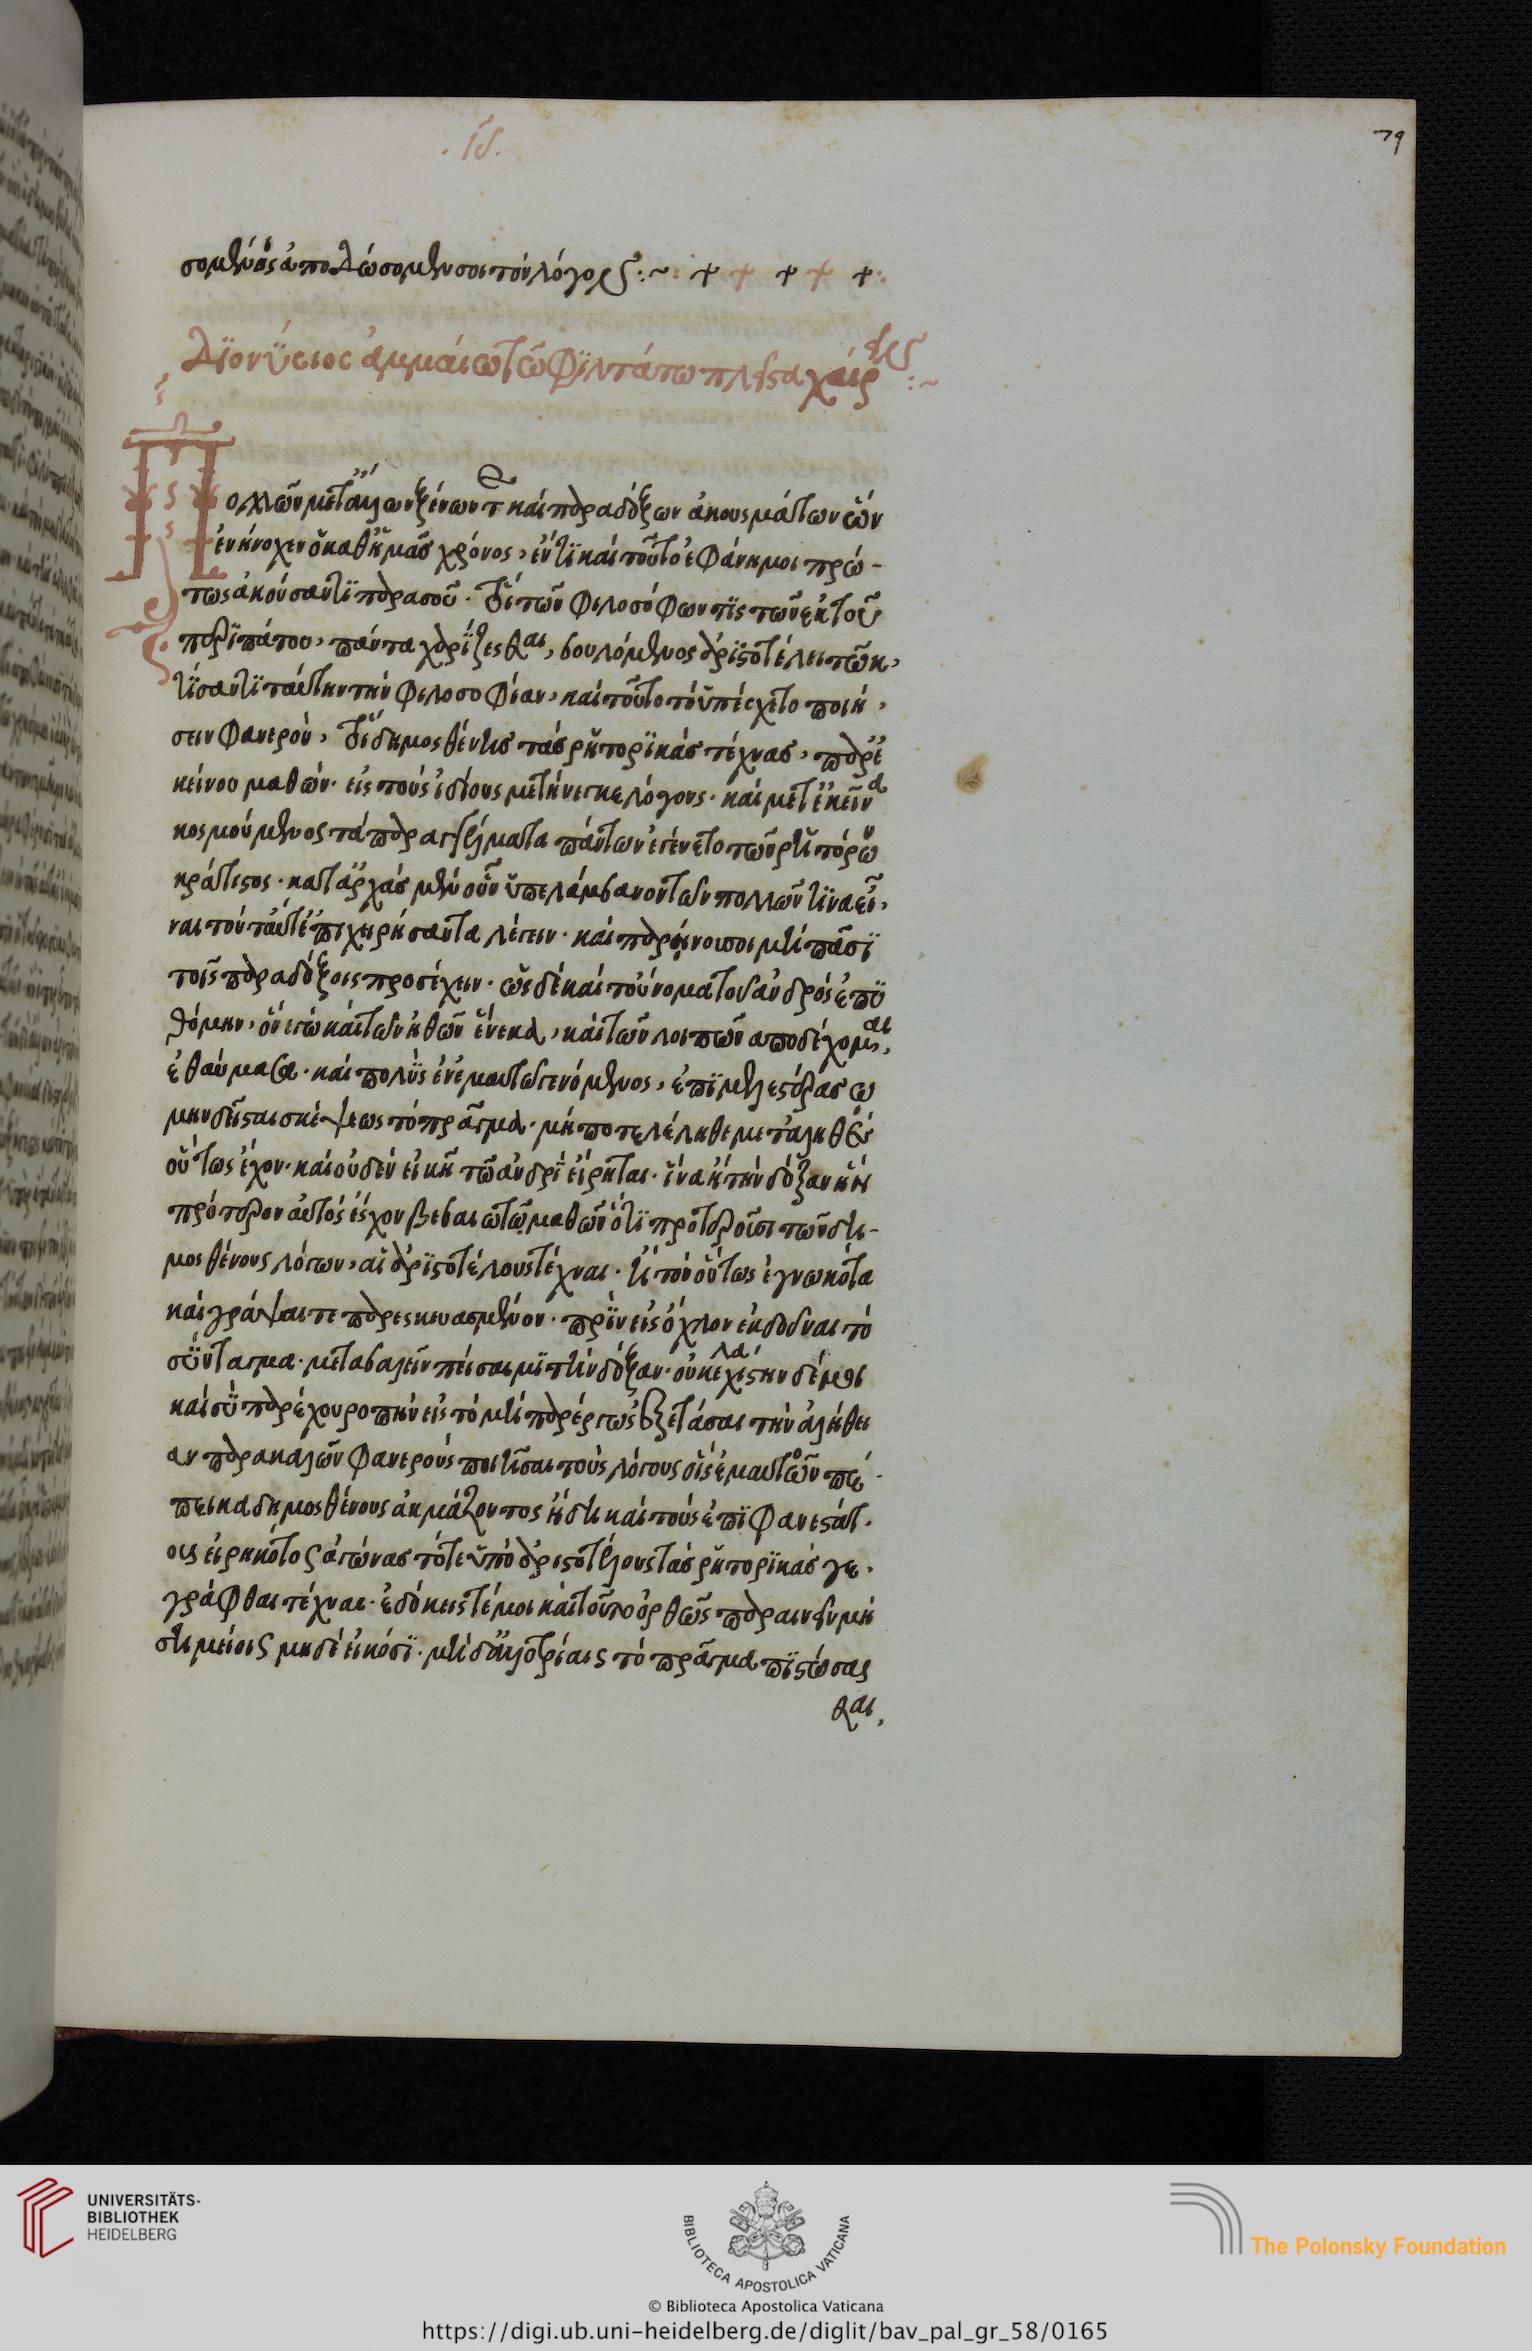 79
.ιδ.
σομένους ἀποδώσομέν σοι τὸν λόγον :~: + + + + +:
Διονύσιος ἀμμαίω τῶ φιλτάτω πλεῖστα χαίρειν :~
Πολλῶν μετ' ἄλλων ξένων τε καὶ παραδόξων ἀκουσμάτων ὧν
ἐνήνοχεν ὁ καθ' ἡμᾶς χρόνος, ἕν τι καὶ τοῦτο ἐφάνη μοι πρώ-
τως ἀκούσαντι παρὰ σοῦ. ὅτι τῶν φιλοσόφων τις τῶν ἐκ τοῦ
περιπάτου, πάντα χαρίζεσθαι, βουλόμενος ἀριστοτέλει τῶ κ,
τίσαντι ταύτην τὴν φιλοσοφίαν, καὶ τοῦτο τὸ ὑπέσχετο ποιή,
σειν φανερὸν, ὅτι δημοσθένης τὰς ῥητορικὰς τέχνας, παρ' ἐ
κείνου μαθὼν. εἰς τοὺς ἰδίους μετήνεγκε λόγους. καὶ μετ' ἐκεῖνα
κοσμούμενος τὰ παραγγέλματα πάντων ἐγένετο τῶν ῥητόρων
κράτιστος. κατ' ἀρχὰς μὲν οὖν ὑπελάμβανον τῶν πολλῶν τινα εἶ,
ναι τὸν ταῦτ' ἐπιχειρήσαντα λέγειν. καὶ παρήνουν σοι μὴ πᾶσι
τοῖς παραδόξοις προσέχειν. ὡς δὲ καὶ τοὔνομα τοῦ ἀνδρὸς ἐπυ
θόμην, ὃν ἐγὼ καὶ τῶν ἠθῶν ἕνεκα, καὶ τῶν λοιπῶν ἀποδέχομαι,
ἐθαύμασα. καὶ πολὺς ἐν ἐμαυτῶ γενόμενος, ἐπιμελεστέρας ὤ
μην δεῖσθαι σκέψεως τὸ πρᾶγμα. μή ποτε λέληθέ με τἀληθὲς
οὕτως ἔχον. καὶ οὐδὲν εἰκῆ τῶ ἀνδρὶ εἴρηται. ἵνα ἢ τὴν δόξαν ἣν
πρότερον αὐτὸς ἔσχον βεβαιωτῶ μαθὼν ὅτι προτεροῦσι τῶν δη-
μοσθένους λόγων, αἱ ἀριστοτέλους τέχναι. ἢ τὸν οὕτως ἐγνωκότα
καὶ γράψαι τε παρεσκευασμένον. πρὶν εἰς ὄχλον ἐκδοῦναι τὸ
σύνταγμα. μεταβαλεῖν πείσαιμι τὴν δόξαν. οὐκ ἐλαχίστην δέ μοι
καὶ σὺ παρέχου ῥοπὴν εἰς τὸ μὴ παρέργως ἐξετάσαι τὴν ἀλήθει
αν παρακαλῶν φανεροὺς ποιῆσαι τοὺς λόγους οἷς ἐμαυτὸν πέ-
πεικα δημοσθένους ἀκμάζοντος ἤδη καὶ τοὺς ἐπιφανεστάτ-
ους εἰρηκότος ἀγῶνας τότε ὑπὸ ἀριστοτέλους τὰς ῥητορικὰς γε,
γράφθαι τέχνας. ἐδόκεις τέ μοι καὶ τοῦτο ὀρθῶς παραινεῖν μὴ
σημείοις μηδὲ εἰκόσι. μὴ δ' ἀλλοτρίαις τὸ πρᾶγμα πιστώσας
θαι,
UNIVERSITÄTS-
BIBLIOTHEK
HEIDELBERG
BIBLIOTECA APOSTOLICA VATICANA
The Polonsky Foundation
© Biblioteca Apostolica Vaticana
https://digi.ub.uni-heidelberg.de/diglit/bav_pal_gr_58/0165